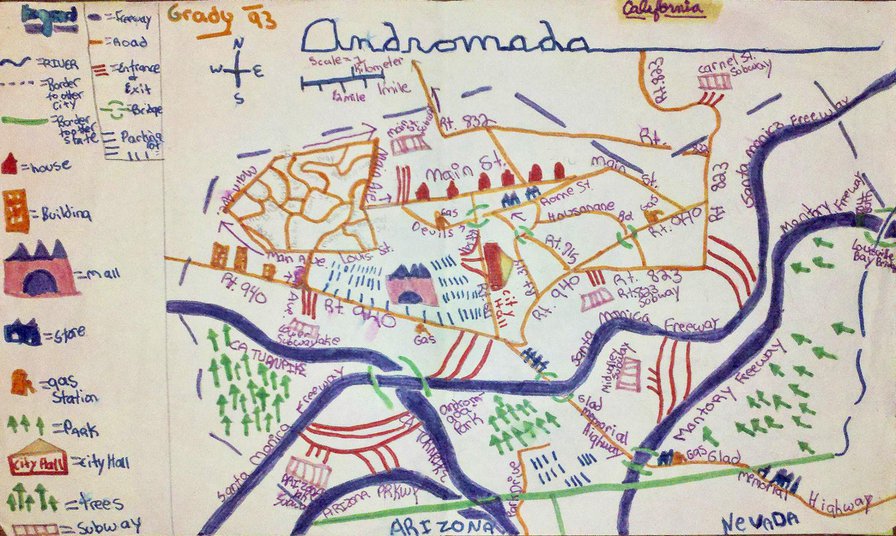 Legend
= Freeway
= Road
= RIVER
= Entrance
& Exit
= Border
to other
City
= Bridge
= Border
to other
state
Parking
lot
= house
= Building
= mall
= Store
= gas
Station
= PArk
City Hall
= City Hall
= trees
= Subway
Grady '93
California
Andromada
N
W
E
S
Scale =
Kilometer
1/2 mile
1mile
Rt. 832
Rt.
832
Rt. 823
Carnel St.
Subway
Main St.
Subway
Main Ave.
Main St.
Main
St.
Rome St.
Housanane
Rd
Gas
Devils
Gas
Rt. 940
Rt 823
Rt. 915
Louis St.
Main Ave
Ave
Rt. 940
Rt. 940
Rt. 940
City
Hall
Rt. 823
Rt.823
Subway
Gas
Santa Monica Freeway
Mantory Freeway
Louisville
Bay Bridge
Santa Monica Freeway
Midvalley
Subway
Mantory Freeway
CA TURNPIKE
Santa Monica Freeway
CA TURNPIKE
Park
Glad
Memorial
Highway
Gas
Glad
Memorial Highway
Park Drive
ARIZONA PRKWY
ARIZONA
NeVADA